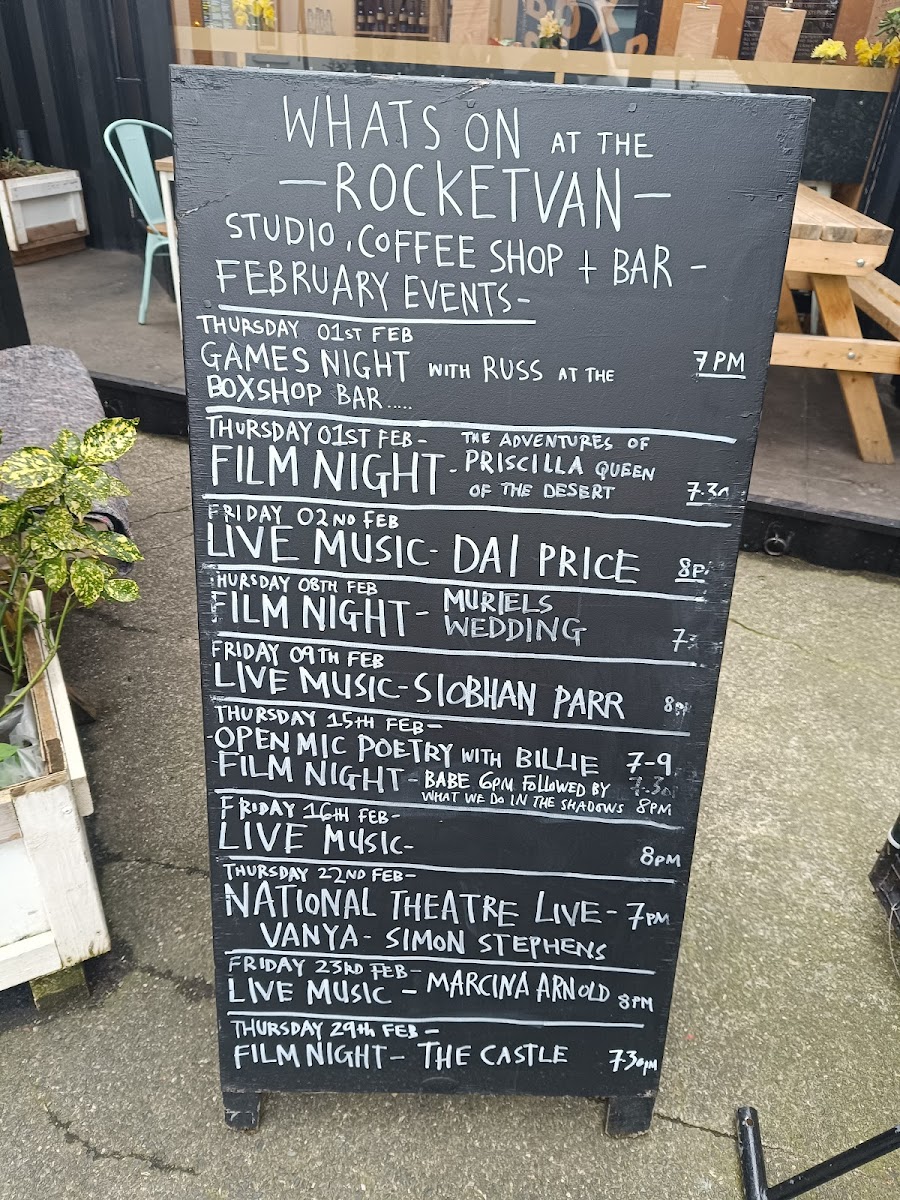 WHATS ON AT THE
—ROCKETVAN—
STUDIO, COFFEE SHOP + BAR -
FEBRUARY EVENTS-
THURSDAY 01ST FEB
GAMES NIGHT WITH RUSS AT THE 7PM
BOXSHOP BAR.....
THURSDAY 01ST FEB- THE ADVENTURES OF
FILM NIGHT- PRISCILLA QUEEN
OF THE DESERT 7.30
FRIDAY 02ND FEB
LIVE MUSIC- DAI PRICE 8P
THURSDAY 08TH FEB
FILM NIGHT- MURIELS
WEDDING 7.
FRIDAY 09TH FEB
LIVE MUSIC- SIOBHAN PARR 8PM
THURSDAY 15TH FEB-
-OPEN MIC POETRY WITH BILLIE 7-9
-FILM NIGHT- BABE 6PM FOLLOWED BY
WHAT WE DO IN THE SHADOWS 8PM
FRIDAY 16TH FEB-
LIVE MUSIC- 8PM
THURSDAY 22ND FEB-
NATIONAL THEATRE LIVE- 7PM
VANYA- SIMON STEPHENS
FRIDAY 23RD FEB-
LIVE MUSIC - MARCINA ARNOLD 8PM
THURSDAY 29th FEB -
FILM NIGHT- THE CASTLE 730PM